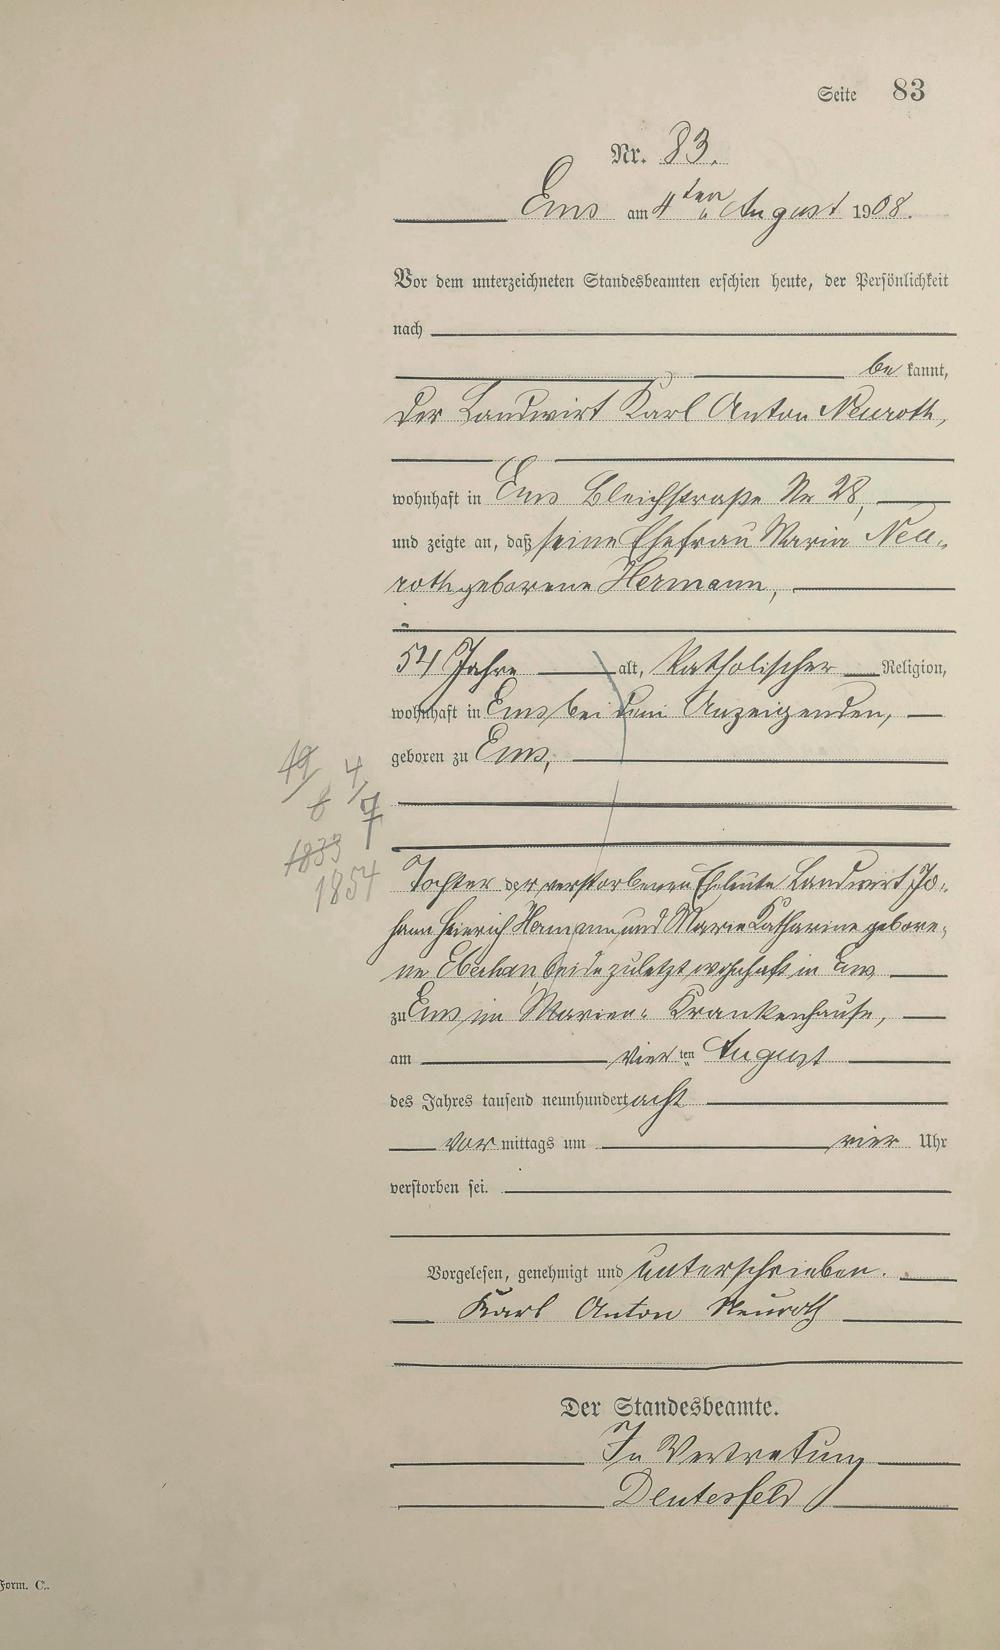 Seite 83
Nr. 83.
Ems am 4ten August 1908.
Vor dem unterzeichneten Standesbeamten erschien heute, der Persönlichkeit
nach
be kannt,
der Landwirt Karl Anton Neuroth,
wohnhaft in Ems Bleichstraße Nr 28,
und zeigte an, daß seine Ehefrau Maria Neu-
roth geborene Hermann,
54 Jahre alt, katholischer Religion,
wohnhaft in Ems bei dem Anzeigenden,
geboren zu Ems,
49 4/7
6
1833
1854
Tochter der verstorbenen Eheleute Landwirt Jo-
hann Heinrich Hermann und Marie Katharine gebore-
ne beide zuletzt wohnhaft in Ems
zu Ems im Marien-Krankenhause,
am vierten August
des Jahres tausend neunhundert acht
vor mittags um vier Uhr
verstorben sei.
Vorgelesen, genehmigt und unterschrieben.
Karl Anton Neuroth
Der Standesbeamte.
In Vertretung
Deutesfeld
Form. C.